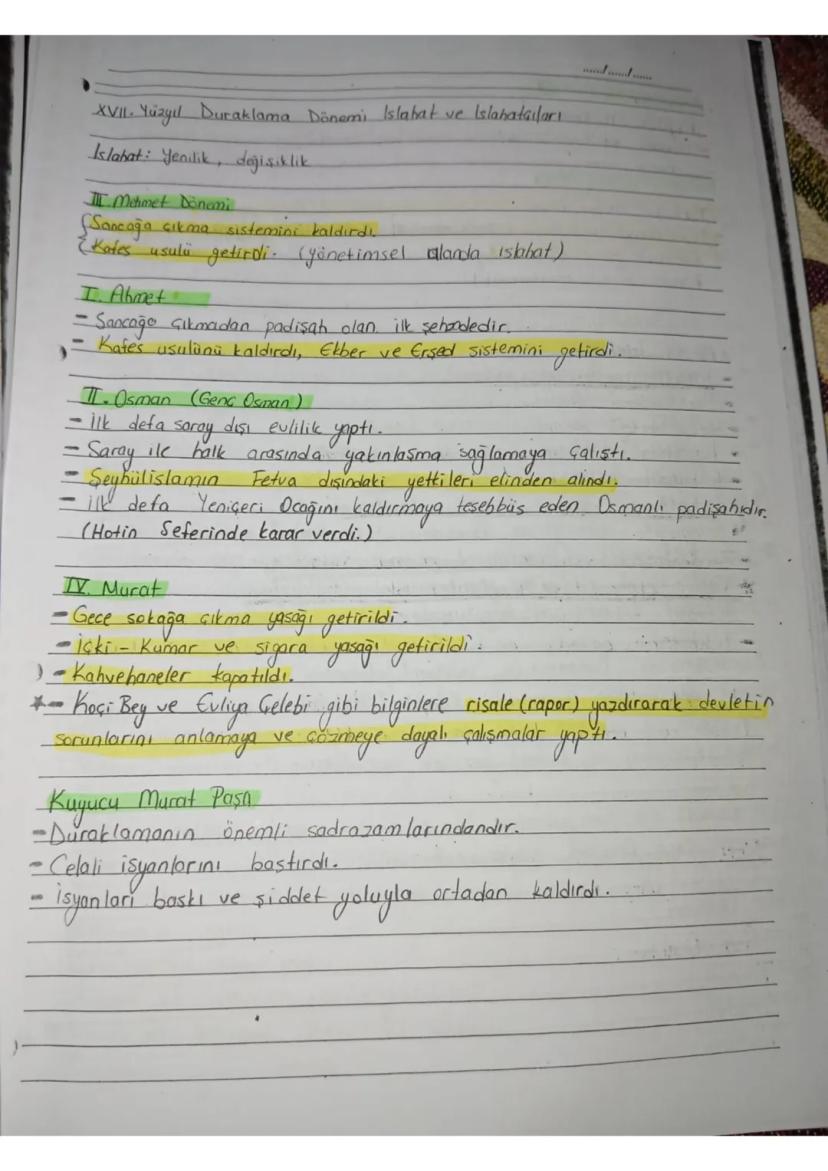 ...../...../.....
XVII. Yüzyıl Duraklama Dönemi Islahat ve Islahatçıları
Islahat: Yenilik, değişiklik
III. Mehmet Dönemi
Sancağa çıkma sistemini kaldırdı.
Kafes usulü getirdi. (yönetimsel alanda ıslahat)
I. Ahmet
- Sancağa çıkmadan padişah olan ilk şehzadedir.
- Kafes usulünü kaldırdı, Ekber ve Erşed sistemini getirdi.
II. Osman (Genç Osman)
- İlk defa saray dışı evlilik yaptı.
- Saray ile halk arasında yakınlaşma sağlamaya çalıştı.
- Şeyhülislamın Fetva dışındaki yetkileri elinden alındı.
- İlk defa Yeniçeri Ocağını kaldırmaya tesebbüs eden Osmanlı padişahıdır.
(Hotin Seferinde karar verdi.)
IV. Murat
- Gece sokağa çıkma yasağı getirildi.
- içki - Kumar ve sigara yasağı getirildi.
- Kahvehaneler kapatıldı.
★- Koçi Bey ve Evliya Çelebi gibi bilginlere risale (rapor) yazdırarak devletin
sorunlarını anlamaya ve çözmeye dayalı çalışmalar yaptı.
Kuyucu Murat Paşa
- Duraklamanın önemli sadrazamlarındandır.
- Celali isyanlarını bastırdı.
- İsyanları baskı ve şiddet yoluyla ortadan kaldırdı.